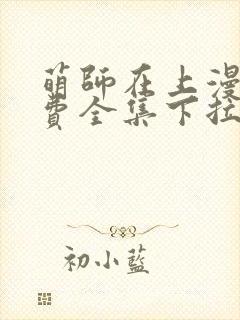 萌師在上漫
費全集下拉
初小藍